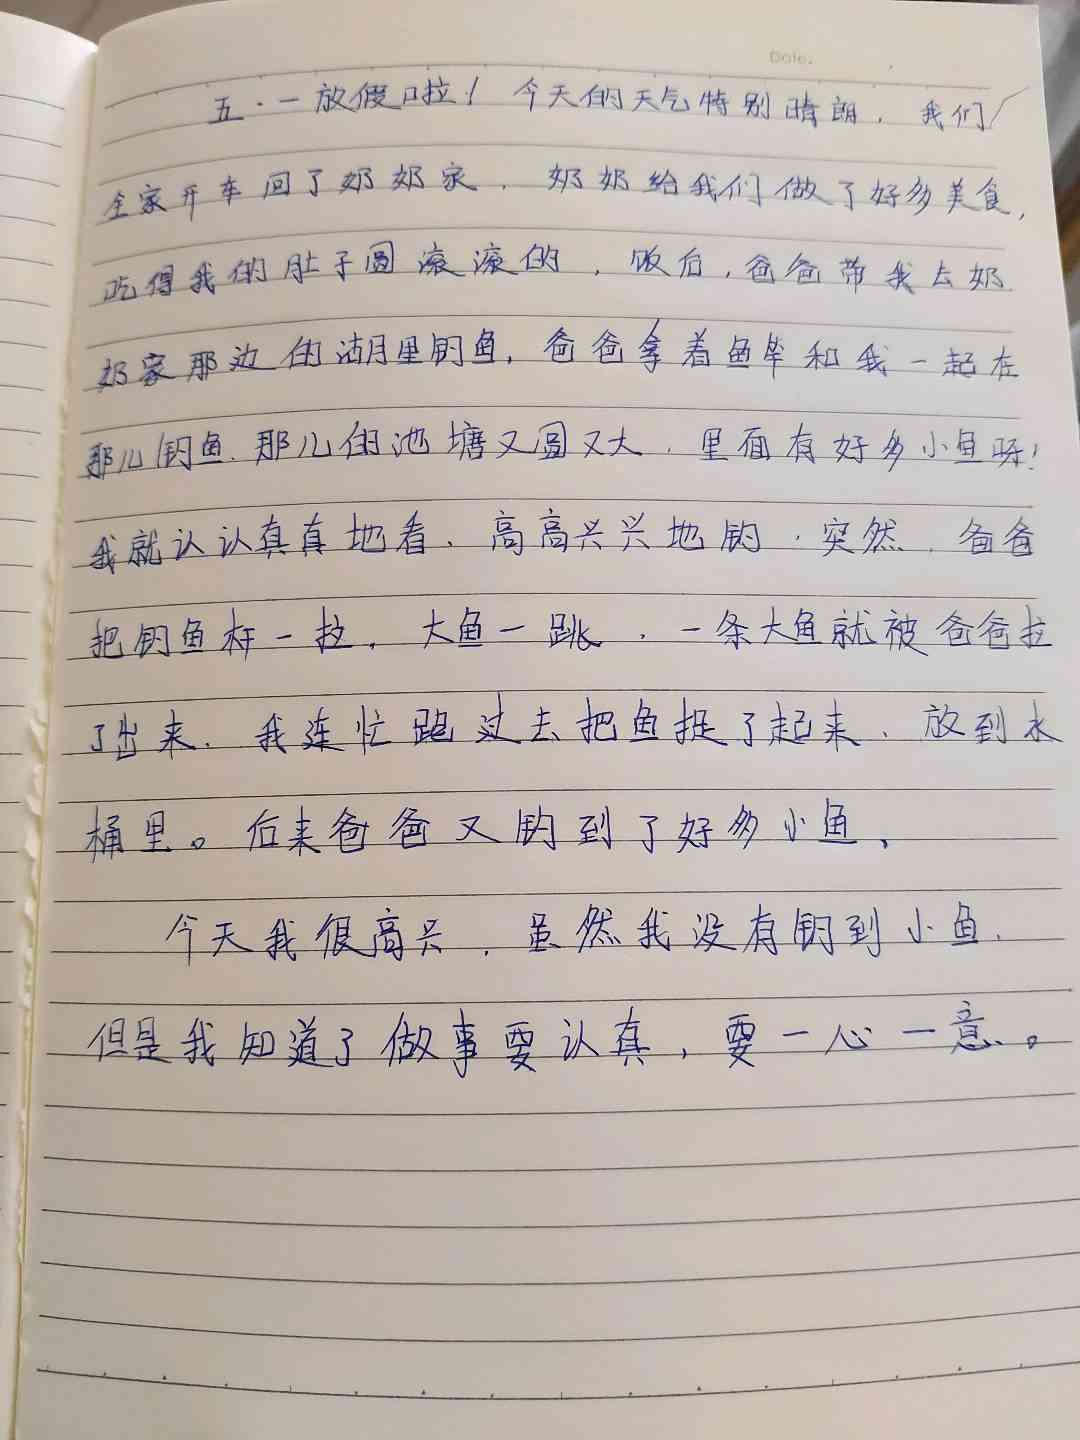 Date.
五·一放假啦！今天的天气特别晴朗，我们
全家开车回了奶奶家，奶奶给我们做了好多美食，
吃得我的肚子圆滚滚的，饭后，爸爸带我去奶
奶家那边的湖里钓鱼，爸爸拿着鱼竿和我一起在
那儿钓鱼.那儿的池塘又圆又大，里面有好多小鱼呀！
我就认认真真地看、高高兴兴地钓，突然，爸爸
把钓鱼杆一拉，大鱼一跳，一条大鱼就被爸爸拉
了出来、我连忙跑过去把鱼捉了起来、放到水
桶里。后来爸爸又钓到了好多小鱼、
今天我很高兴，虽然我没有钓到小鱼、
但是我知道了做事要认真，要一心一意。